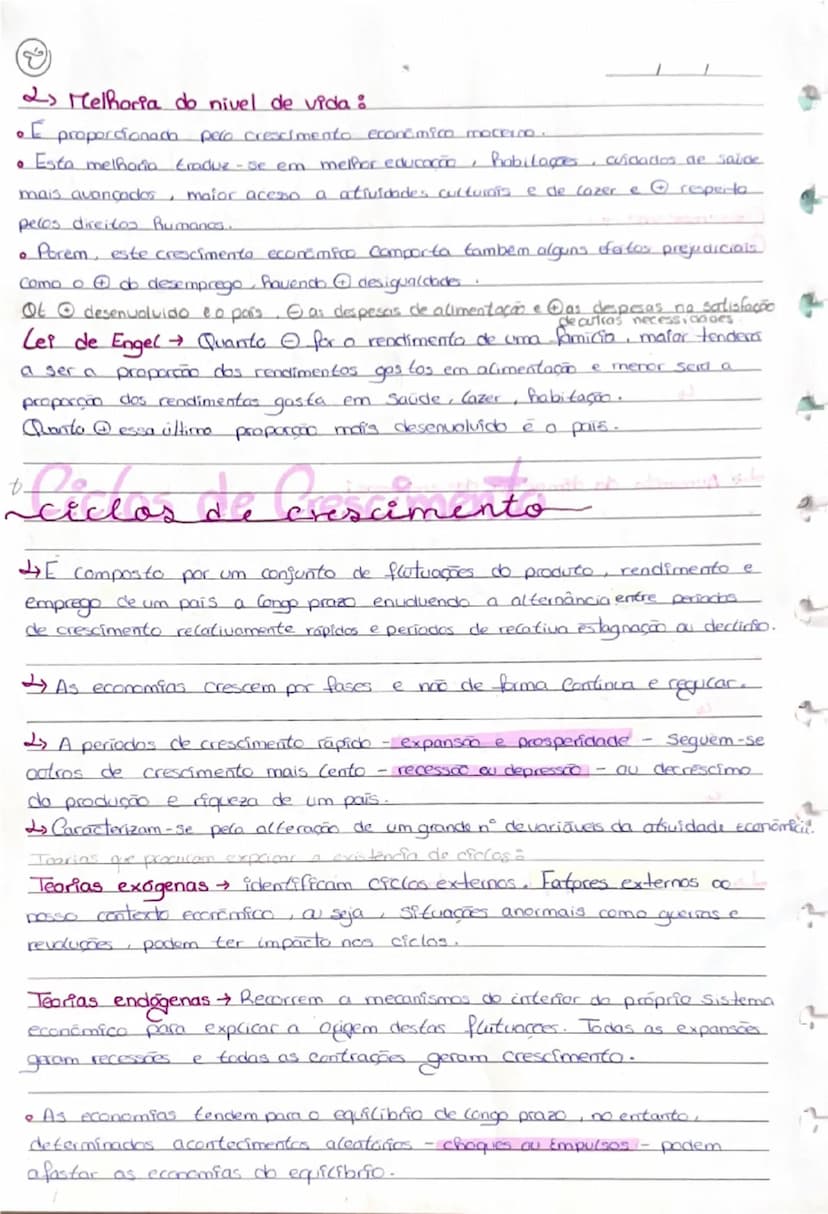 8
/ /
↳ Melhoria do nivel de vida:
• É proporcionada pelo crescimento económico moderno.
• Esta melhoria traduz-se em melhor educação, habitações, cuidados de saúde
mais avançados, maior acesso a atividades culturais e de lazer e ⊕ respeito
pelos direitos humanos.
• Porém, este crescimento económico comporta também alguns efeitos prejudiciais
como o ⊕ do desemprego, havendo ⊕ desigualdades.
Qt ⊕ desenvolvido é o país, ⊖ as despesas de alimentação e ⊕ as despesas na satisfação
de outras necessidades
Lei de Engel → Quanto ⊖ for o rendimento de uma família, maior tenderá
a ser a proporção dos rendimentos gastos em alimentação e menor será a
proporção dos rendimentos gasta em saúde, lazer, habitação.
Quanto ⊕ essa última proporção mais desenvolvido é o país.
Ciclos de Crescimento
ciclos de crescimento
↳ É composto por um conjunto de flutuações do produto, rendimento e
emprego de um país a longo prazo envolvendo a alternância entre períodos
de crescimento relativamente rápidos e períodos de relativa estagnação ou declínio.
↳ As economias crescem por fases e não de forma contínua e regular.
↳ A períodos de crescimento rápido - expansão e prosperidade - seguem-se
outros de crescimento mais lento - recessão ou depressão - ou decréscimo
da produção e riqueza de um país.
↳ Caracterizam-se pela alteração de um grande nº de variáveis da atividade económica.
Teorias que procuram explicar a existência de ciclos:
Teorias exógenas → identificam ciclos externos. Fatores externos ao
nosso contexto económico, ou seja, situações anormais como guerras e
revoluções, podem ter impacto nos ciclos.
Teorias endógenas → Recorrem a mecanismos do interior do próprio sistema
económico para explicar a origem destas flutuações. Todas as expansões
geram recessões e todas as contrações geram crescimento.
• As economias tendem para o equilíbrio de longo prazo, no entanto,
determinados acontecimentos aleatórios - choques ou impulsos - podem
afastar as economias do equilíbrio.